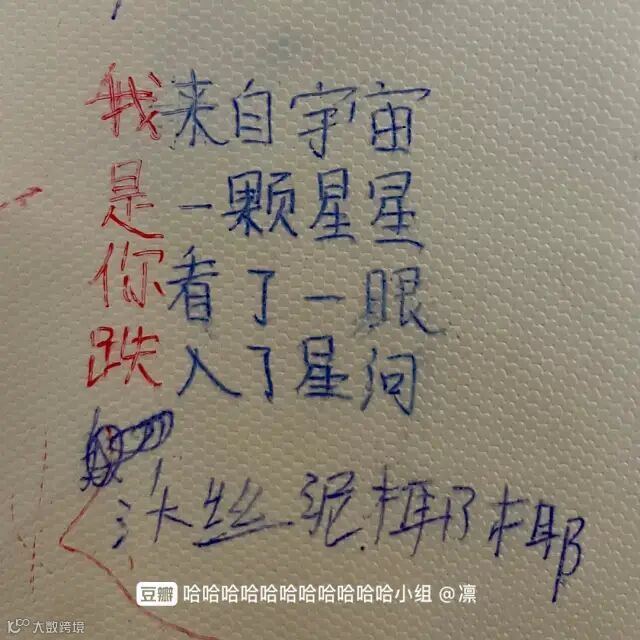 我来自宇宙
是一颗星星
你看了一眼
跌入了星问
汰丝泥椰椰
豆瓣 哈哈哈哈哈哈哈哈哈哈哈小组 @凛
大数跨境